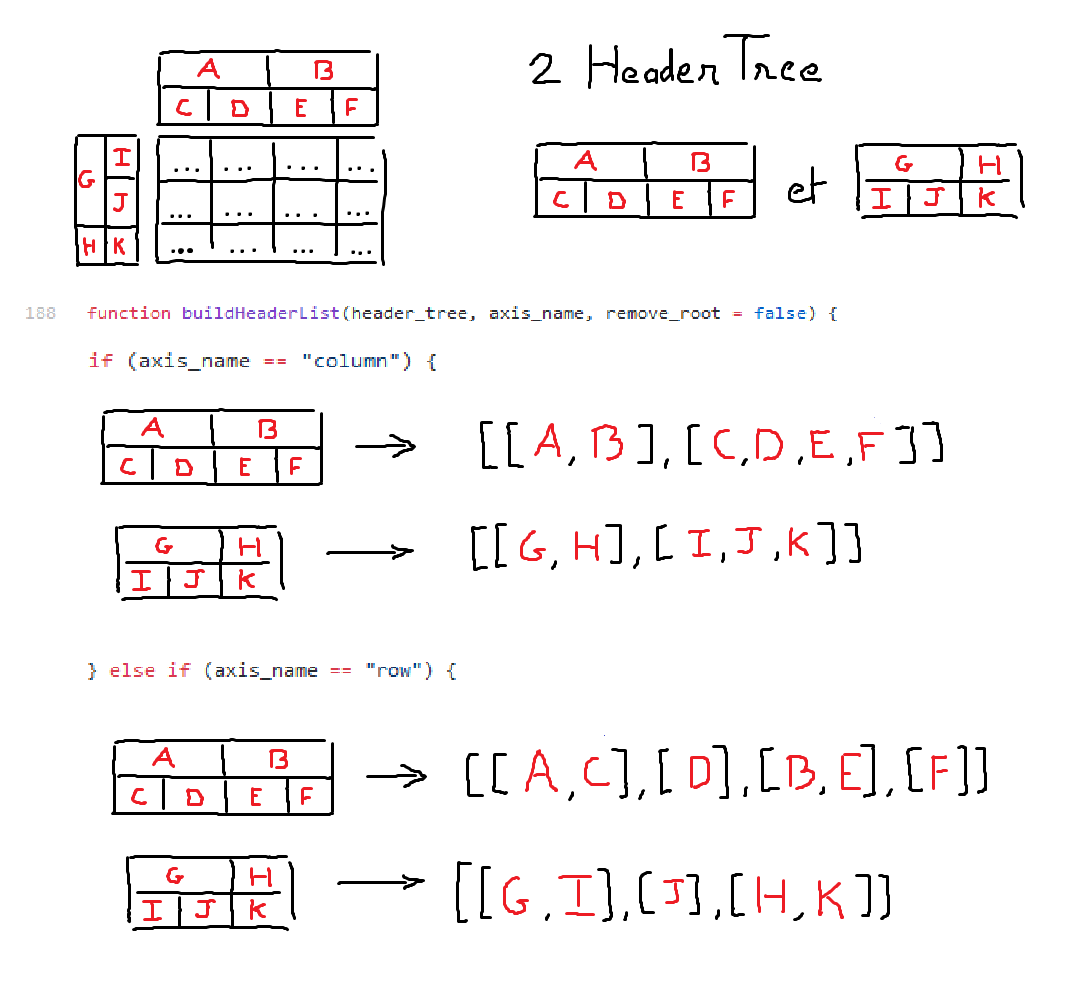 A B
2 Header Tree
C D E F
G I
J
H K
... ... ... ...
... ... ... ...
... ... ... ...
A B
C D E F
et
G H
I J K
188 function buildHeaderList(header_tree, axis_name, remove_root = false) {
if (axis_name == "column") {
A B
C D E F
[[A,B],[C,D,E,F]]
G H
I J K
[[G,H],[I,J,K]]
} else if (axis_name == "row") {
A B
C D E F
[[A,C],[D],[B,E],[F]]
G H
I J K
[[G,I],[J],[H,K]]